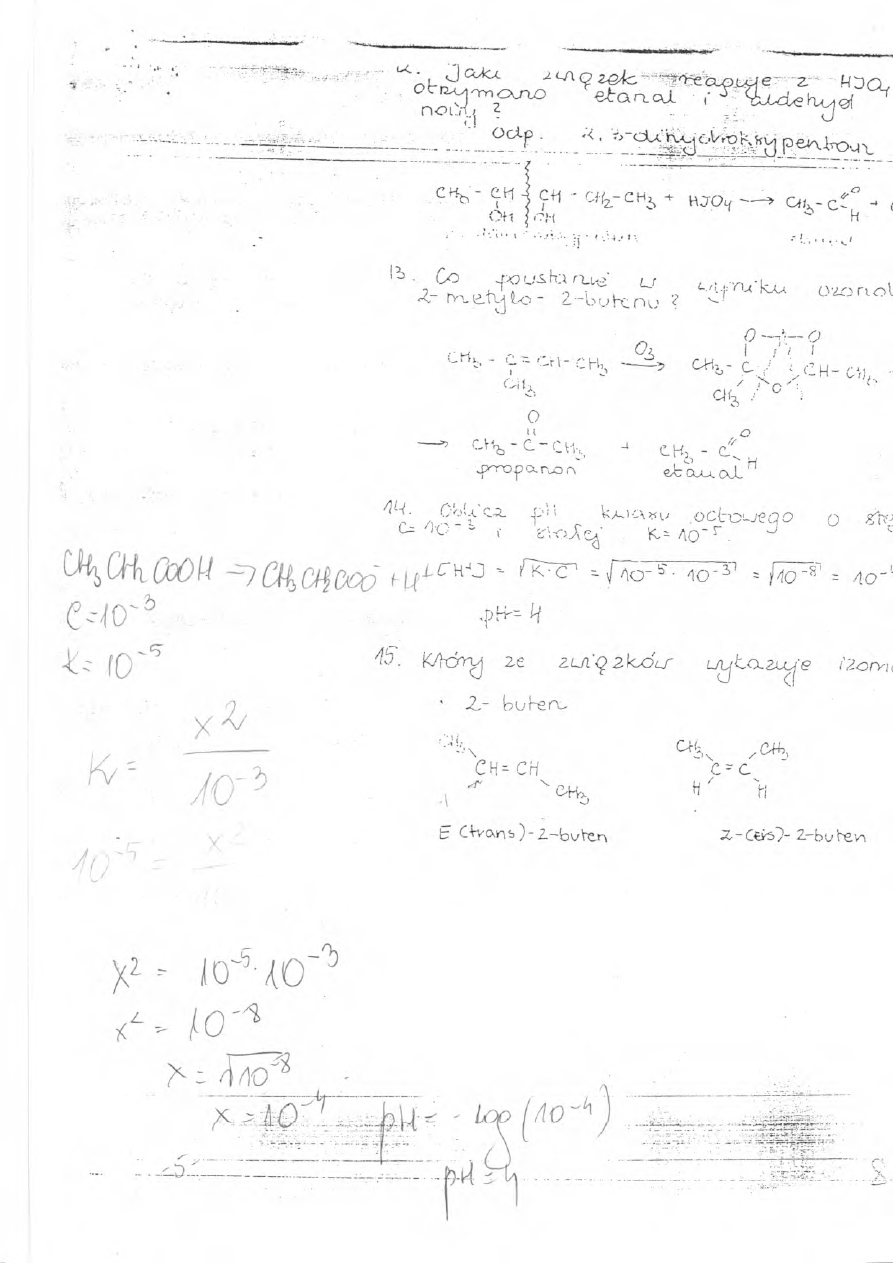 Jaki związek reaguje z HJO4
otrzymano etanal i aldehyd
nowy?
odp. 2,3-dihydroksypentan
CH3 - CH - CH - CH2-CH3 + HJO4 → CH3-C=O
OH OH H
13. Co powstanie w wyniku ozonol
2-metylo-2-butenu?
CH3 - C = CH-CH3 O3→ CH3 - C CH-CH3
CH3 CH3 O
O O
→ CH3-C-CH3 + CH3-C=O
O H
propanon etanal
14. Oblicz pH kwasu octowego o stę
C=10-3 i stałej K=10-5.
CH3CH2COOH → CH3CH2COO- + H+ [H+] = √K·C = √10-5·10-3 = √10-8 = 10-4
C=10-3
pH=4
K=10-5
15. Który ze związków wykazuje izome
2-buten
K = x2
10-3
CH3 CH3 CH3
CH = CH C = C
CH3 H H
10-5 = x2
E(trans)-2-buten Z-(cis)-2-buten
x2 = 10-5·10-3
x2 = 10-8
x = √10-8
x = 10-4 pH = -log(10-4)
-5-
pH = 4
8